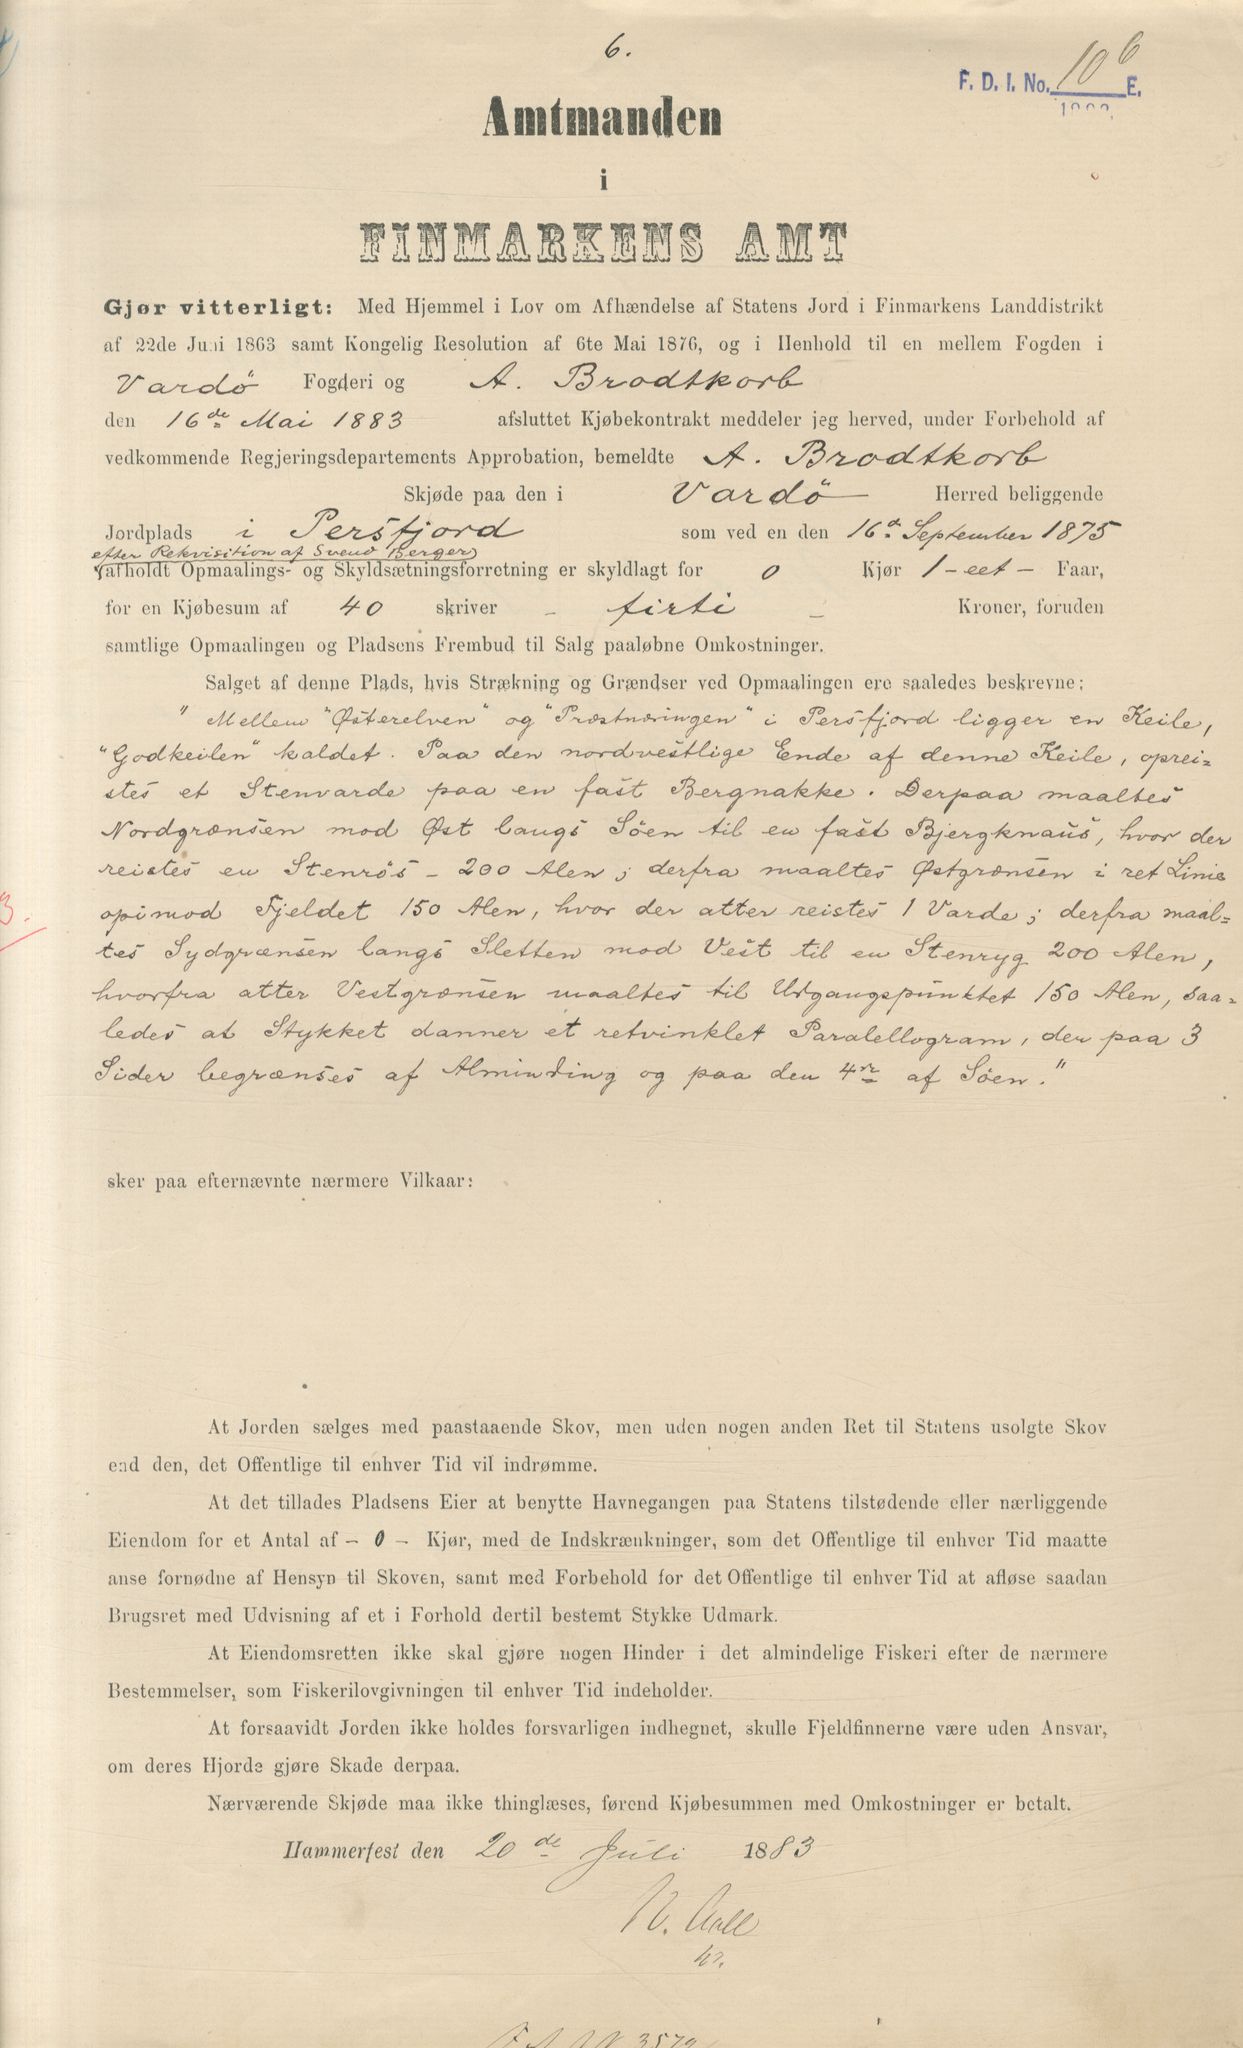 6.
F. D. I. No. 106 E.
Amtmanden
i
FINMARKENS AMT
Gjør vitterligt: Med Hjemmel i Lov om Afhændelse af Statens Jord i Finmarkens Landdistrikt
af 22de Juni 1863 samt Kongelig Resolution af 6te Mai 1876, og i Henhold til en mellem Fogden i
Vardø Fogderi og A. Brodtkorb
den 16de Mai 1883 afsluttet Kjøbekontrakt meddeler jeg herved, under Forbehold af
vedkommende Regjeringsdepartements Approbation, bemeldte A. Brodtkorb
Skjøde paa den i Vardø Herred beliggende
Jordplads i Persfjord som ved en den 16d. September 1875
efter Rekvisition af Svend Berger
afholdt Opmaalings- og Skyldsætningsforretning er skyldlagt for 0 Kjør 1 - eet - Faar,
for en Kjøbesum af 40 skriver - firti - Kroner, foruden
samtlige Opmaalingen og Pladsens Frembud til Salg paaløbne Omkostninger.
Salget af denne Plads, hvis Strækning og Grændser ved Opmaalingen ere saaledes beskrevne:
"Mellem "Østerelven" og "Præstnæringen" i Persfjord ligger en Keile,
"Godkeilen" kaldet. Paa den nordvestlige Ende af denne Keile, oprei=
stes et Stenvarde paa en fast Bergnakke. Derpaa maaltes
Nordgrænsen mod Øst langs Söen til en fast Bjergknaus, hvor der
reistes en Stenrøs - 200 Alen; derfra maaltes Østgrænsen i ret Linie
opimod Fjeldet 150 Alen, hvor der atter reistes 1 Varde; derfra maal=
tes Sydgrænsen langs Sletten mod Vest til en Stenryg 200 Alen,
hvorfra atter Vestgrænsen maaltes til Udgangspunktet 150 Alen, saa=
ledes at Stykket danner et retvinklet Paralellogram, der paa 3
Sider begrænses af Alminding og paa den 4de af Söen."
3.
sker paa efternævnte nærmere Vilkaar:
At Jorden sælges med paastaaende Skov, men uden nogen anden Ret til Statens usolgte Skov
end den, det Offentlige til enhver Tid vil indrømme.
At det tillades Pladsens Eier at benytte Havnegangen paa Statens tilstødende eller nærliggende
Eiendom for et Antal af - 0 - Kjør, med de Indskrænkninger, som det Offentlige til enhver Tid maatte
anse fornødne af Hensyn til Skoven, samt med Forbehold for det Offentlige til enhver Tid at afløse saadan
Brugsret med Udvisning af et i Forhold dertil bestemt Stykke Udmark.
At Eiendomsretten ikke skal gjøre nogen Hinder i det almindelige Fiskeri efter de nærmere
Bestemmelser, som Fiskerilovgivningen til enhver Tid indeholder.
At forsaavidt Jorden ikke holdes forsvarligen indhegnet, skulle Fjeldfinnerne være uden Ansvar,
om deres Hjorde gjøre Skade derpaa.
Nærværende Skjøde maa ikke thinglæses, førend Kjøbesummen med Omkostninger er betalt.
Hammerfest den 20de Juli 1883
N. Aall